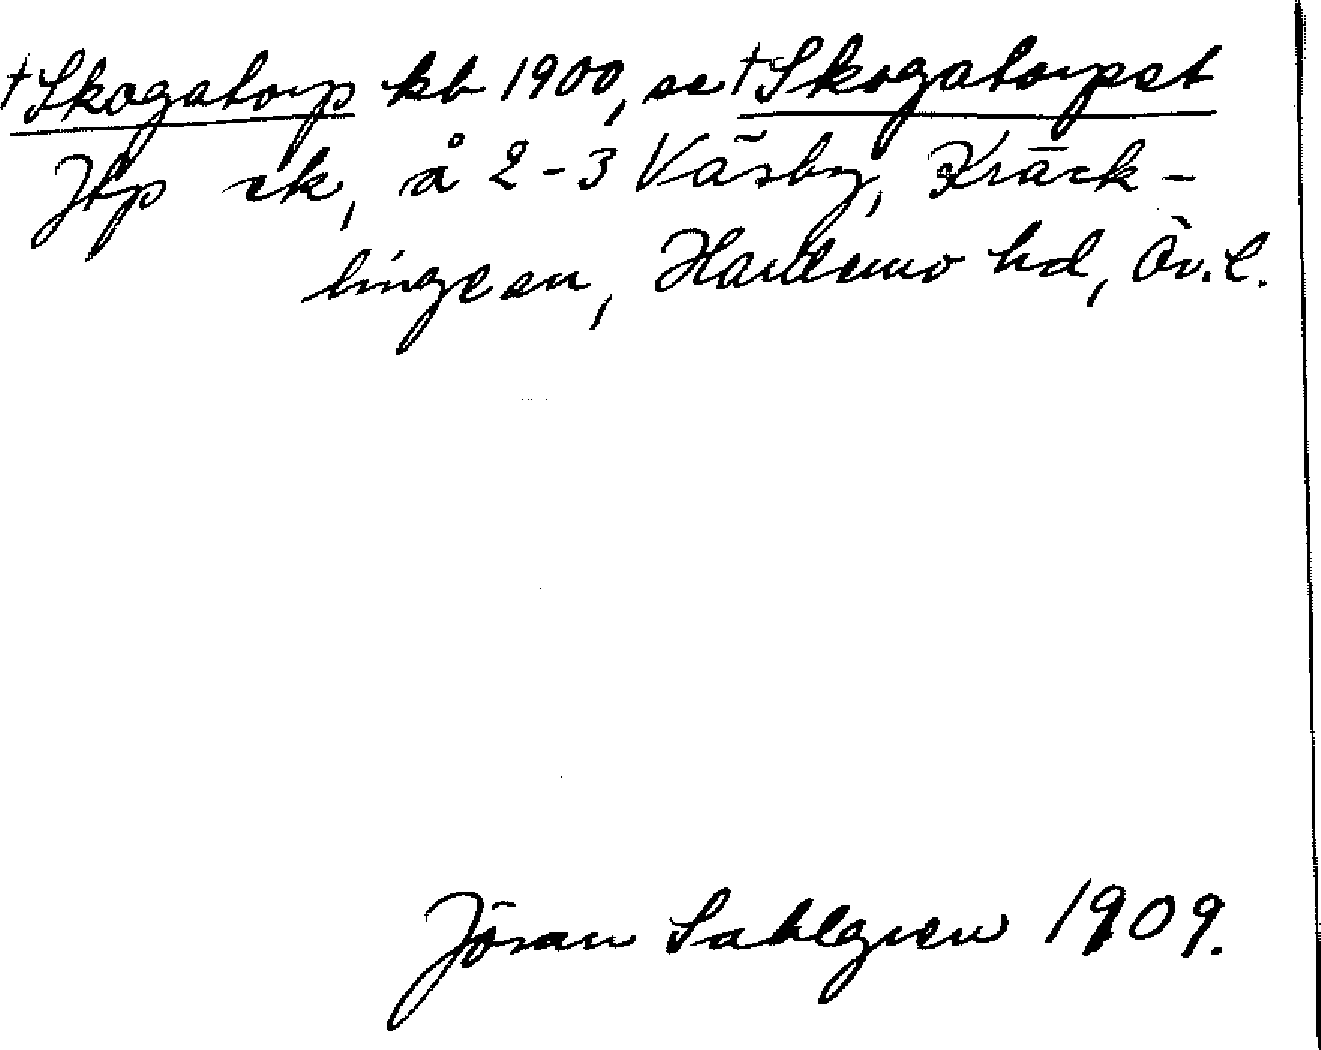 †Skogatorp kb 1900, se †Skogatorpet
Jtp ek, å 2-3 Väsby, Kräck-
linge sn, Hardemo hd, Ör. l.
Jöran Sahlgren 1909.